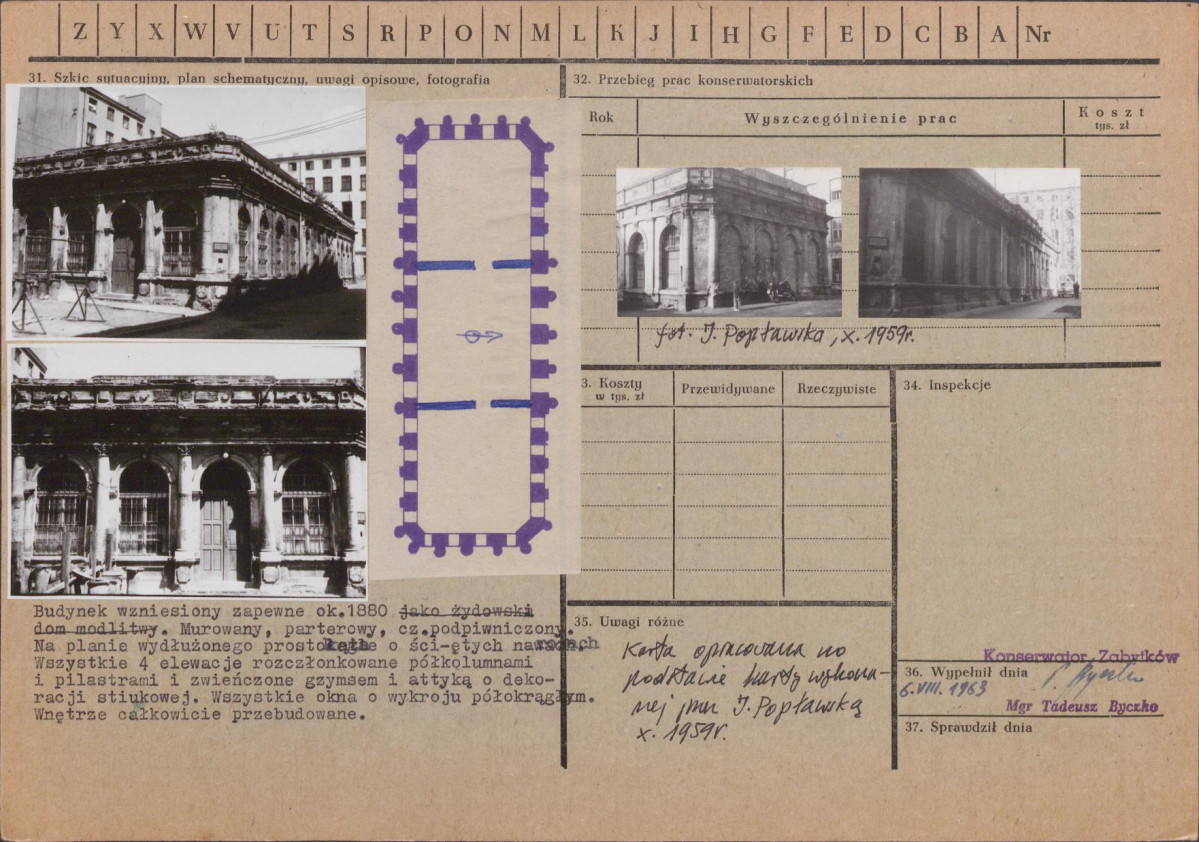 Z Y X W V U T S R P O N M L K J I H G F E D C B A Nr
31. Szkic sytuacyjny, plan schematyczny, uwagi opisowe, fotografia
32. Przebieg prac konserwatorskich
Rok
Wyszczególnienie prac
Koszt
tys. zł
fot. J. Popławska, X. 1959r.
3. Koszty
w tys. zł
Przewidywane
Rzeczywiste
34. Inspekcje
Budynek wzniesiony zapewne ok.1880 jako żydowski
dom modlitwy. Murowany, parterowy, cz.podpiwniczony.
Na planie wydłużonego prostokąta o ści-ętych narożach.
Wszystkie 4 elewacje rozczłonkowane półkolumnami
i pilastrami i zwieńczone gzymsem i attyką o deko-
racji stiukowej. Wszystkie okna o wykroju półokrągłym.
Wnętrze całkowicie przebudowane.
35. Uwagi różne
Karta opracowana na
podstawie karty wykona-
nej przez J. Popławską
X. 1959r.
Konserwator Zabytków
36. Wypełnił dnia
6.VIII.1963
Mgr Tadeusz Byczko
37. Sprawdził dnia